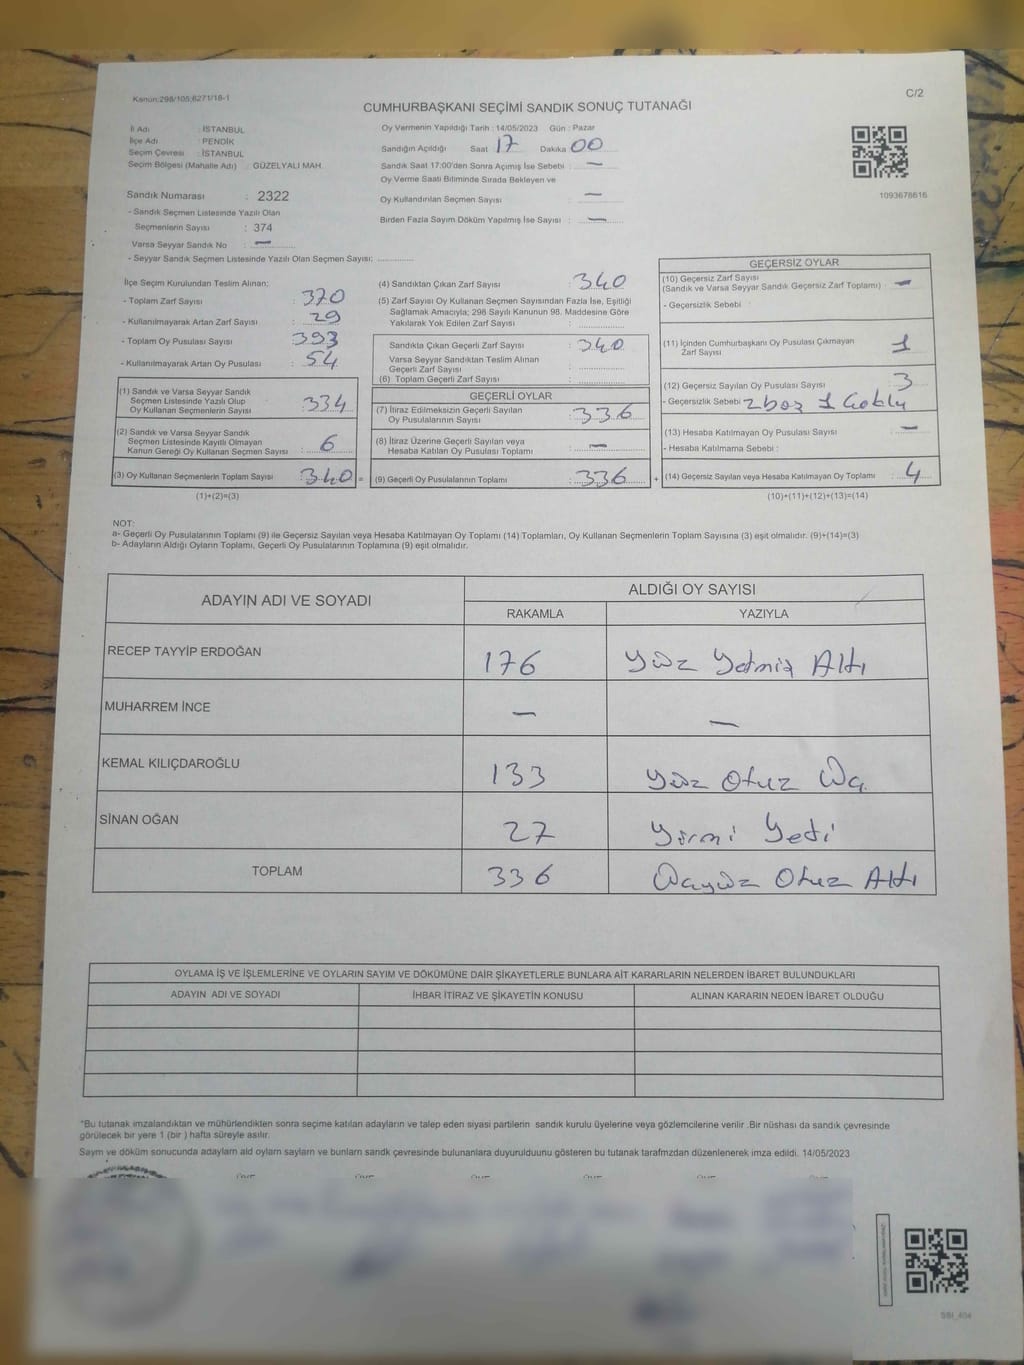 Kanun:298/105,6271/18-1
C/2
CUMHURBAŞKANI SEÇİMİ SANDIK SONUÇ TUTANAĞI
İl Adı : İSTANBUL
İlçe Adı : PENDİK
Seçim Çevresi : İSTANBUL
Seçim Bölgesi (Mahalle Adı) : GÜZELYALI MAH.
Sandık Numarası : 2322
- Sandık Seçmen Listesinde Yazılı Olan
Seçmenlerin Sayısı : 374
Varsa Seyyar Sandık No : —
- Seyyar Sandık Seçmen Listesinde Yazılı Olan Seçmen Sayısı: ............
Oy Vermenin Yapıldığı Tarih : 14/05/2023 Gün : Pazar
Sandığın Açıldığı Saat 17 Dakika 00
Sandık Saat 17:00'den Sonra Açımış İse Sebebi : —
Oy Verme Saati Bitiminde Sırada Bekleyen ve
Oy Kullandırılan Seçmen Sayısı : —
Birden Fazla Sayım Döküm Yapılmış İse Sayısı : —
1093678616
İlçe Seçim Kurulundan Teslim Alınan;
- Toplam Zarf Sayısı : 370
- Kullanılmayarak Artan Zarf Sayısı : 29
- Toplam Oy Pusulası Sayısı : 393
- Kullanılmayarak Artan Oy Pusulası : 54
(1) Sandık ve Varsa Seyyar Sandık
Seçmen Listesinde Yazılı Olup
Oy Kullanan Seçmenlerin Sayısı : 334
(2) Sandık ve Varsa Seyyar Sandık
Seçmen Listesinde Kayıtlı Olmayan
Kanun Gereği Oy Kullanan Seçmen Sayısı : 6
(3) Oy Kullanan Seçmenlerin Toplam Sayısı : 340 =
(1)+(2)=(3)
(4) Sandıktan Çıkan Zarf Sayısı : 340
(5) Zarf Sayısı Oy Kullanan Seçmen Sayısından Fazla İse, Eşitliği
Sağlamak Amacıyla; 298 Sayılı Kanunun 98. Maddesine Göre
Yakılarak Yok Edilen Zarf Sayısı : ............
Sandıkta Çıkan Geçerli Zarf Sayısı : 340
Varsa Seyyar Sandıktan Teslim Alınan
Geçerli Zarf Sayısı : ............
(6) Toplam Geçerli Zarf Sayısı : ............
GEÇERLİ OYLAR
(7) İtiraz Edilmeksizin Geçerli Sayılan
Oy Pusulalarının Sayısı : 336
(8) İtiraz Üzerine Geçerli Sayılan veya
Hesaba Katılan Oy Pusulası Toplamı : —
(9) Geçerli Oy Pusulalarının Toplamı : 336 +
GEÇERSİZ OYLAR
(10) Geçersiz Zarf Sayısı
(Sandık ve Varsa Seyyar Sandık Geçersiz Zarf Toplamı) : —
- Geçersizlik Sebebi :
(11) İçinden Cumhurbaşkanı Oy Pusulası Çıkmayan
Zarf Sayısı : 1
(12) Geçersiz Sayılan Oy Pusulası Sayısı : 3
- Geçersizlik Sebebi 2 boş 1
(13) Hesaba Katılmayan Oy Pusulası Sayısı : —
- Hesaba Katılmama Sebebi :
(14) Geçersiz Sayılan veya Hesaba Katılmayan Oy Toplamı : 4
(10)+(11)+(12)+(13)=(14)
NOT:
a- Geçerli Oy Pusulalarının Toplamı (9) ile Geçersiz Sayılan veya Hesaba Katılmayan Oy Toplamı (14) Toplamları, Oy Kullanan Seçmenlerin Toplam Sayısına (3) eşit olmalıdır. (9)+(14)=(3)
b- Adayların Aldığı Oyların Toplamı, Geçerli Oy Pusulalarının Toplamına (9) eşit olmalıdır.
ADAYIN ADI VE SOYADI
ALDIĞI OY SAYISI
RAKAMLA YAZIYLA
RECEP TAYYİP ERDOĞAN 176 Yüz Yetmiş Altı
MUHARREM İNCE — —
KEMAL KILIÇDAROĞLU 133 Yüz Otuz Üç
SİNAN OĞAN 27 Yirmi Yedi
TOPLAM 336 Üçyüz Otuz Altı
OYLAMA İŞ VE İŞLEMLERİNE VE OYLARIN SAYIM VE DÖKÜMÜNE DAİR ŞİKAYETLERLE BUNLARA AİT KARARLARIN NELERDEN İBARET BULUNDUKLARI
ADAYIN ADI VE SOYADI İHBAR İTİRAZ VE ŞİKAYETİN KONUSU ALINAN KARARIN NEDEN İBARET OLDUĞU
"Bu tutanak imzalandıktan ve mühürlendikten sonra seçime katılan adayların ve talep eden siyasi partilerin sandık kurulu üyelerine veya gözlemcilerine verilir .Bir nüshası da sandık çevresinde
görülecek bir yere 1 (bir ) hafta süreyle asılır.
Sayım ve döküm sonucunda adayların ald oyların sayların ve bunların sandk çevresinde bulunanlara duyurulduunu gösteren bu tutanak tarafmzdan düzenlenerek imza edildi. 14/05/2023
SBI_404